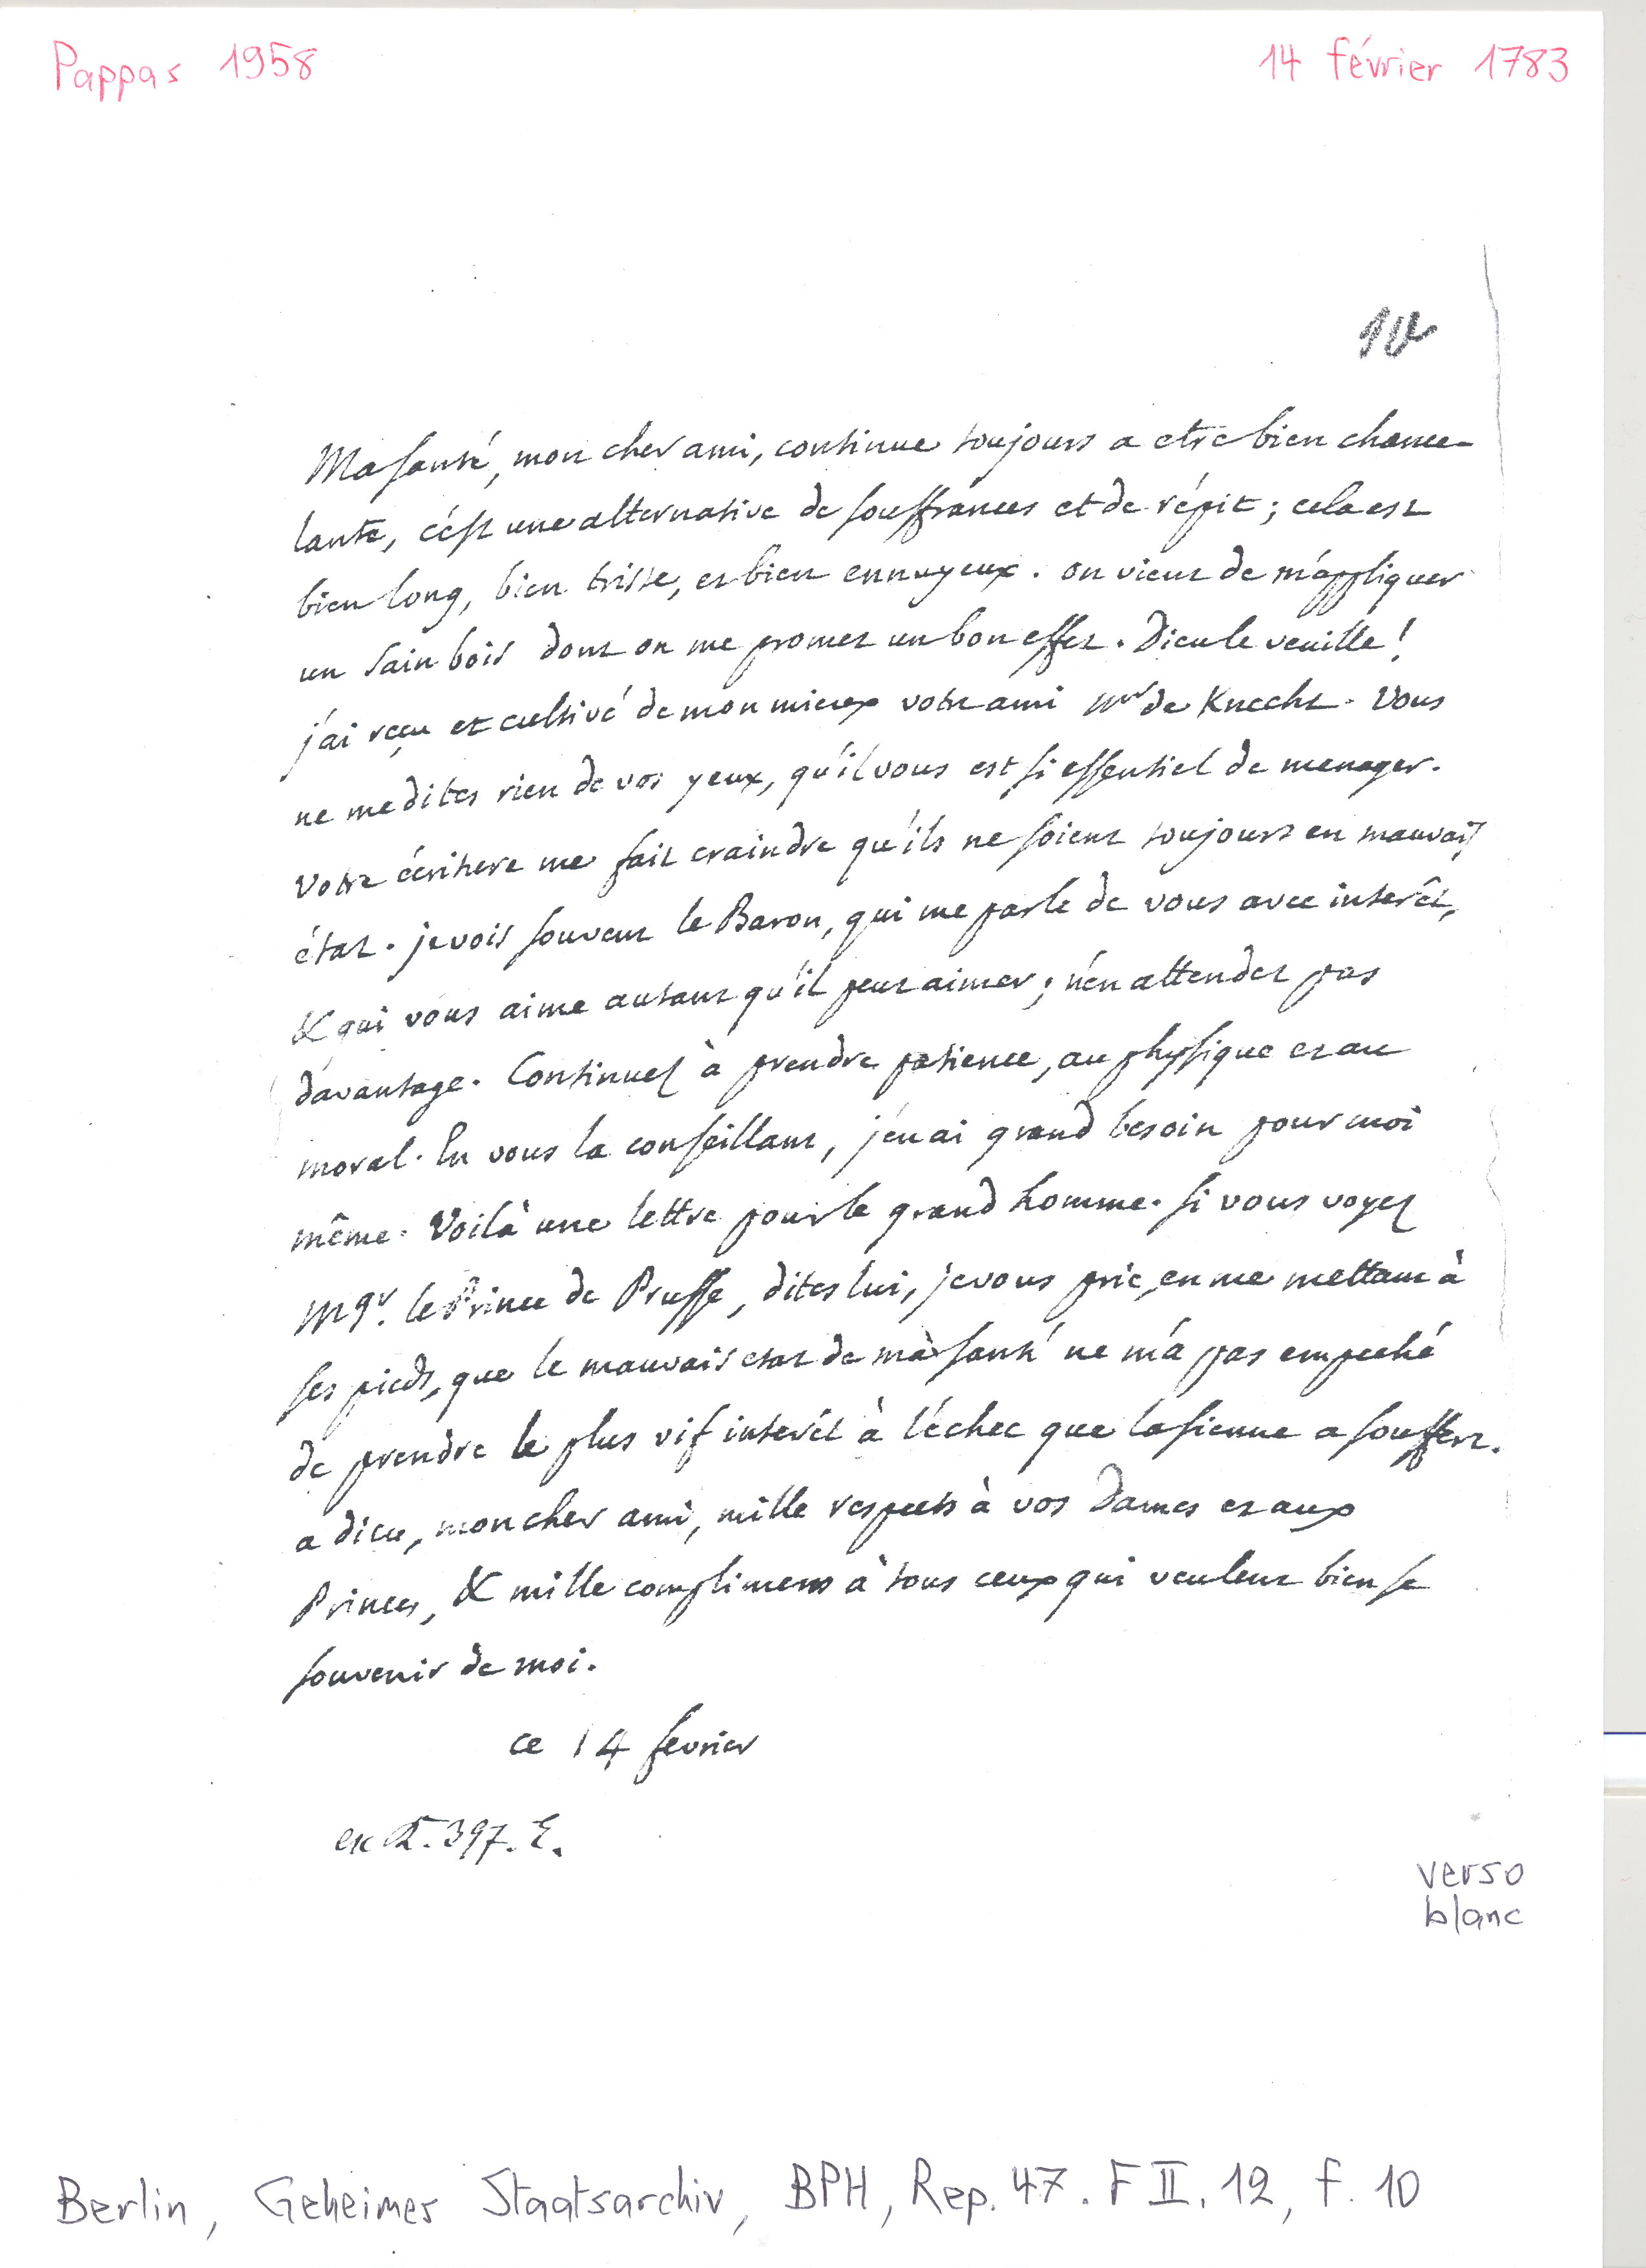 Pappas 1958
14 février 1783
10
Ma santé, mon cher ami, continue toujours a etre bien chance-
lante, c'est une alternative de souffrances et de répit; cela est
bien long, bien triste, et bien ennuyeux. on vient de m'appliquer
un sain bois dont on me promet un bon effet. Dieu le veuille!
j'ai reçu et cultivé de mon mieux votre ami Mr de Knecht. Vous
ne me dites rien de vos yeux, qu'il vous est si essentiel de menager.
Votre écriture me fait craindre qu'ils ne soient toujours en mauvais
état. je vois souvent le Baron, qui me parle de vous avec interêt,
& qui vous aime autant qu'il peut aimer; n'en attendez pas
davantage. Continuez à prendre patience, au physique et au
moral. En vous la conseillant, j'en ai grand besoin pour moi
même. Voilà une lettre pour le grand homme. si vous voyez
Mgr. le Prince de Prusse, dites lui, je vous prie, en me mettant à
ses pieds, que le mauvais etat de ma santé ne m'a pas empeché
de prendre le plus vif interêt à l'échec que la sienne a souffert.
a dieu, mon cher ami, mille respects à vos Dames et aux
Princes, & mille complimens à tous ceux qui veulent bien se
souvenir de moi.
ce 14 fevrier
397. E.
verso
blanc
Berlin, Geheimes Staatsarchiv, BPH, Rep. 47. F II. 12, f. 10